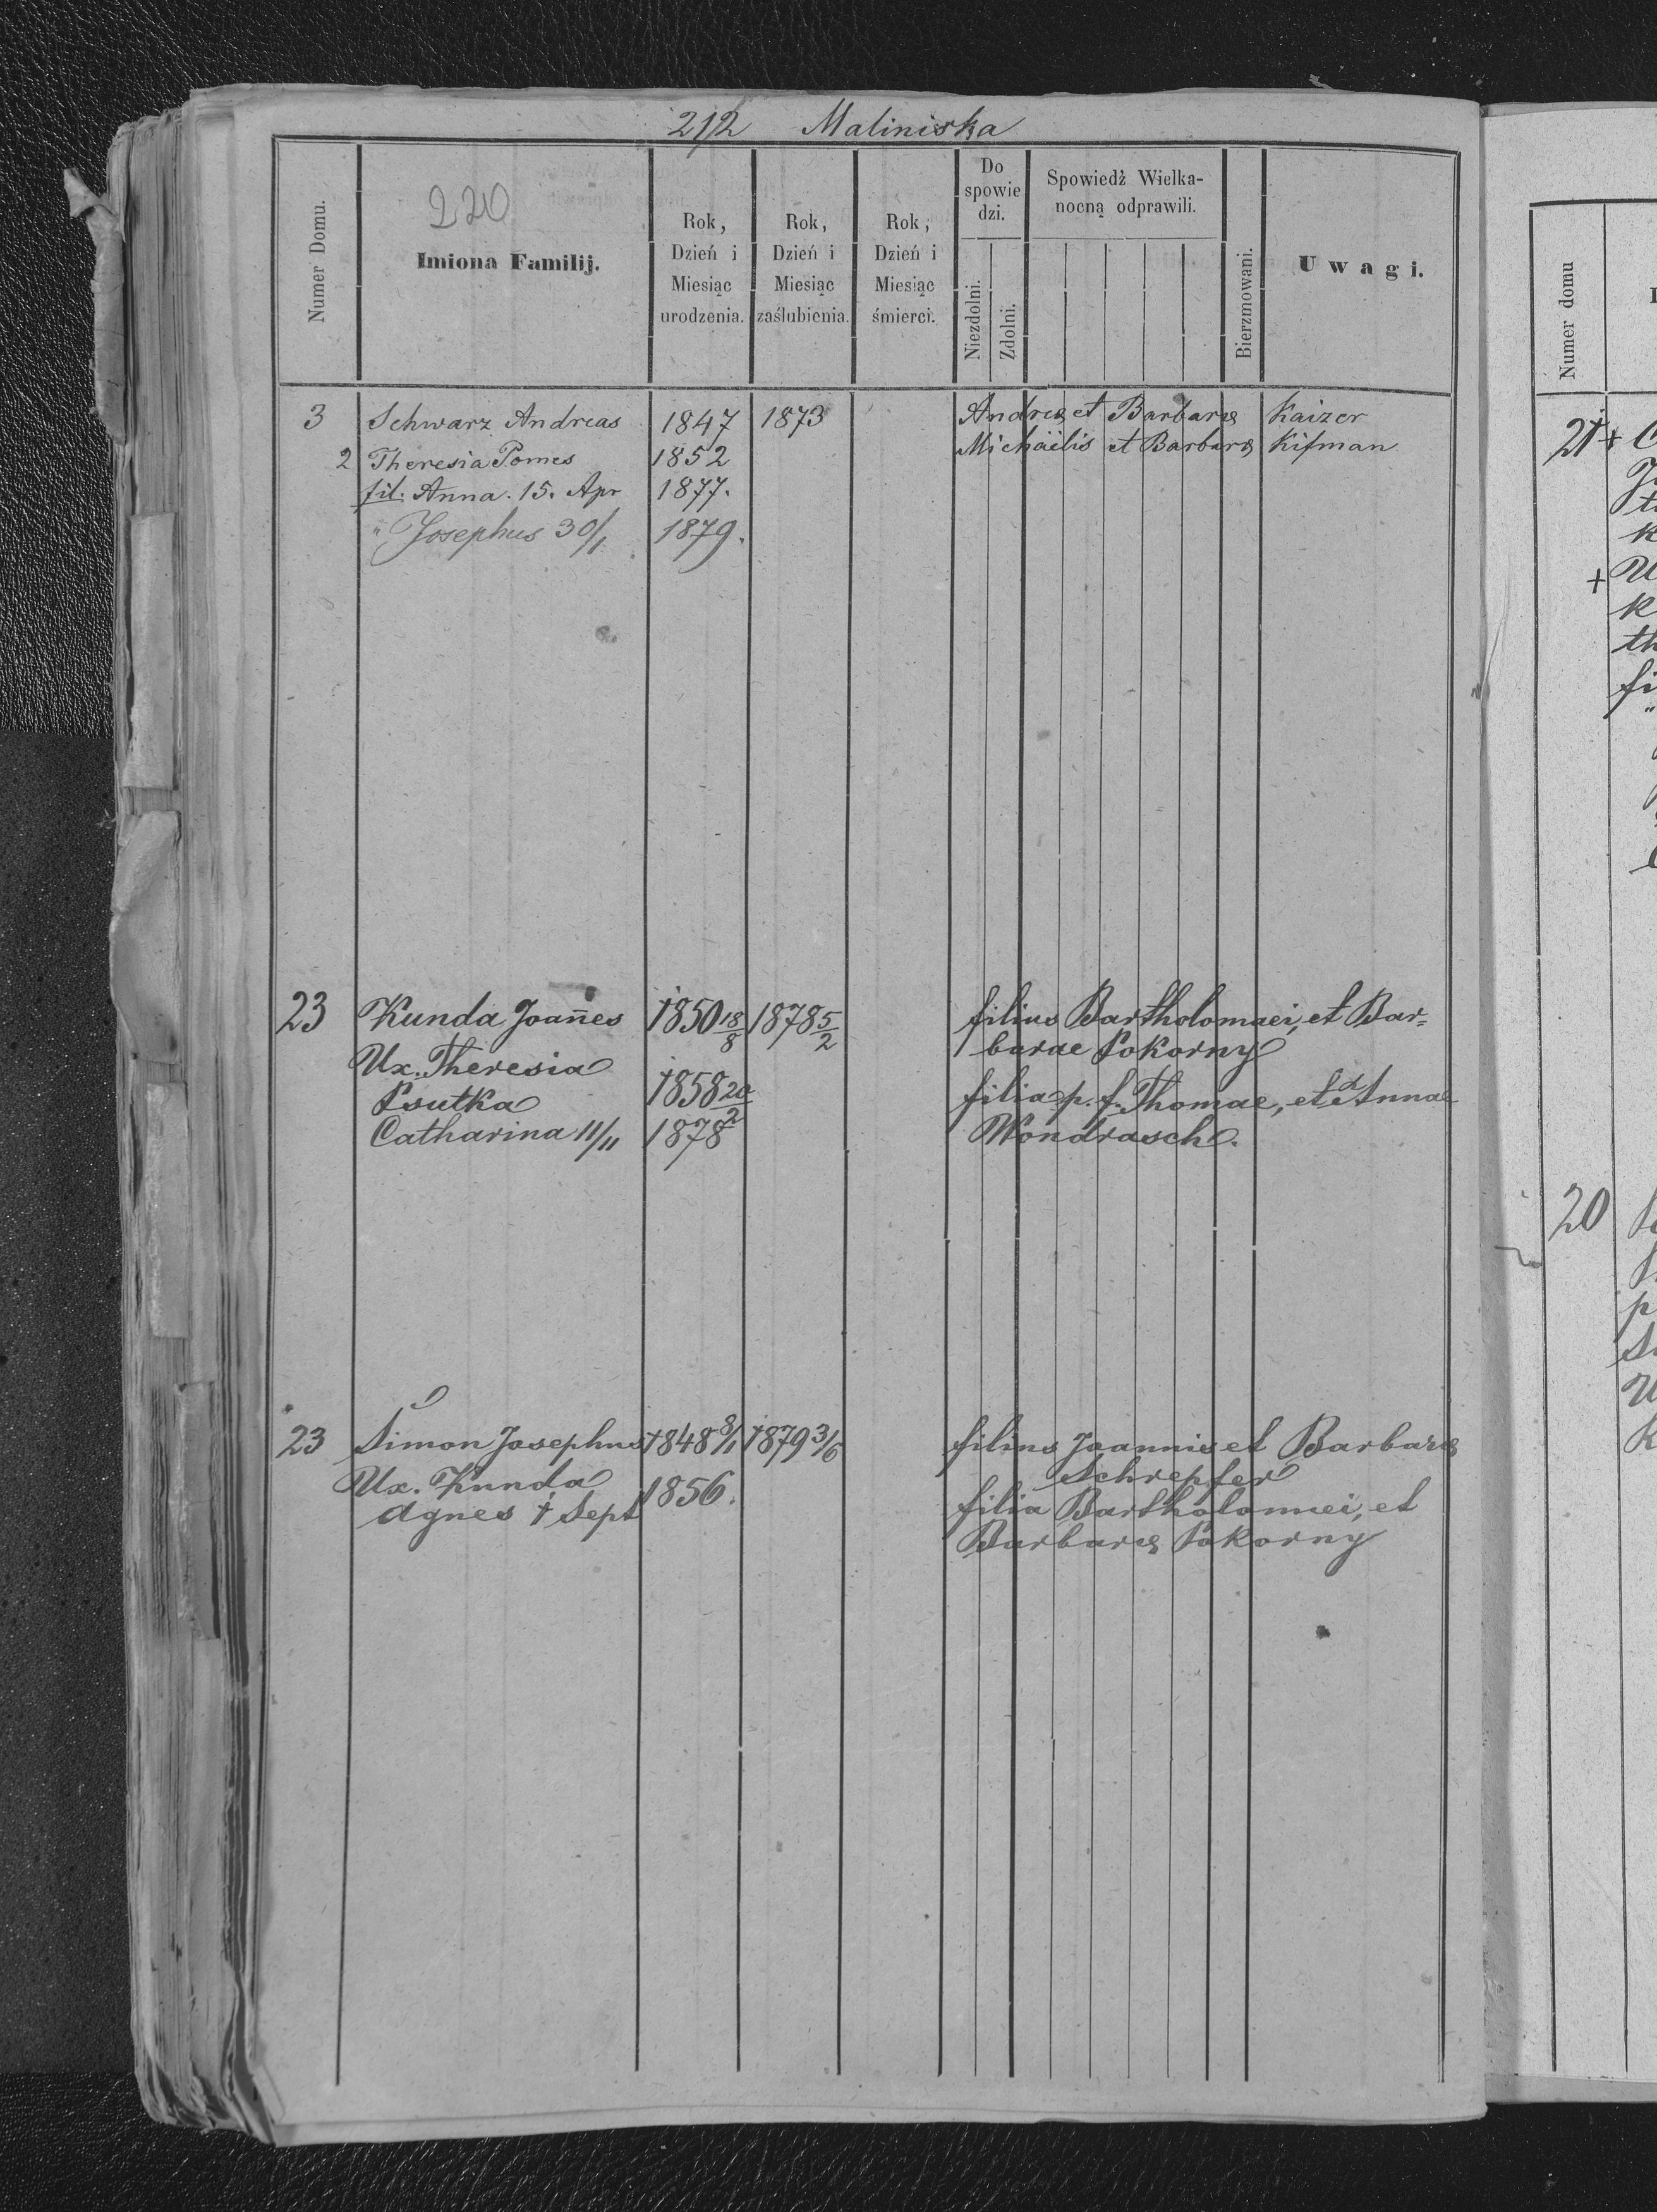 212 Maliniska
220
Numer Domu.
Imiona Familij.
Rok, Dzień i Miesiąc urodzenia.
Rok, Dzień i Miesiąc zaślubienia.
Rok, Dzień i Miesiąc śmierci.
Do spowie dzi.
Niezdolni.
Zdolni.
Spowiedź Wielka-
nocną odprawili.
Bierzmowani.
Uwagi.
3 Schwarz Andreas 1847 1873 Andreæ et Barbaræ Kaizer
2 Theresia Pomes 1852 Michaëlis et Barbaræ Kifman
fil. Anna. 15. Apr 1877.
" Josephus 30/1 1879.
23 Kunda Joan̄es 1850 18/8 1878 5/2 filius Bartholomaei, et Bar=
barae Pokorny
Ux. Theresia
Psutka 1858 20/2 filia p. f. Thomae, et Annae
Catharina 11/11 1878 Wondrasch.
23 Simon Josephus 1848 8/1 1879 3/6 filius Joannis et Barbaræ
Schrepfer
Ux. Kunda 1856.
Agnes † Sept filia Bartholomei, et
Barbaræ Pokorny
Numer domu
21
20